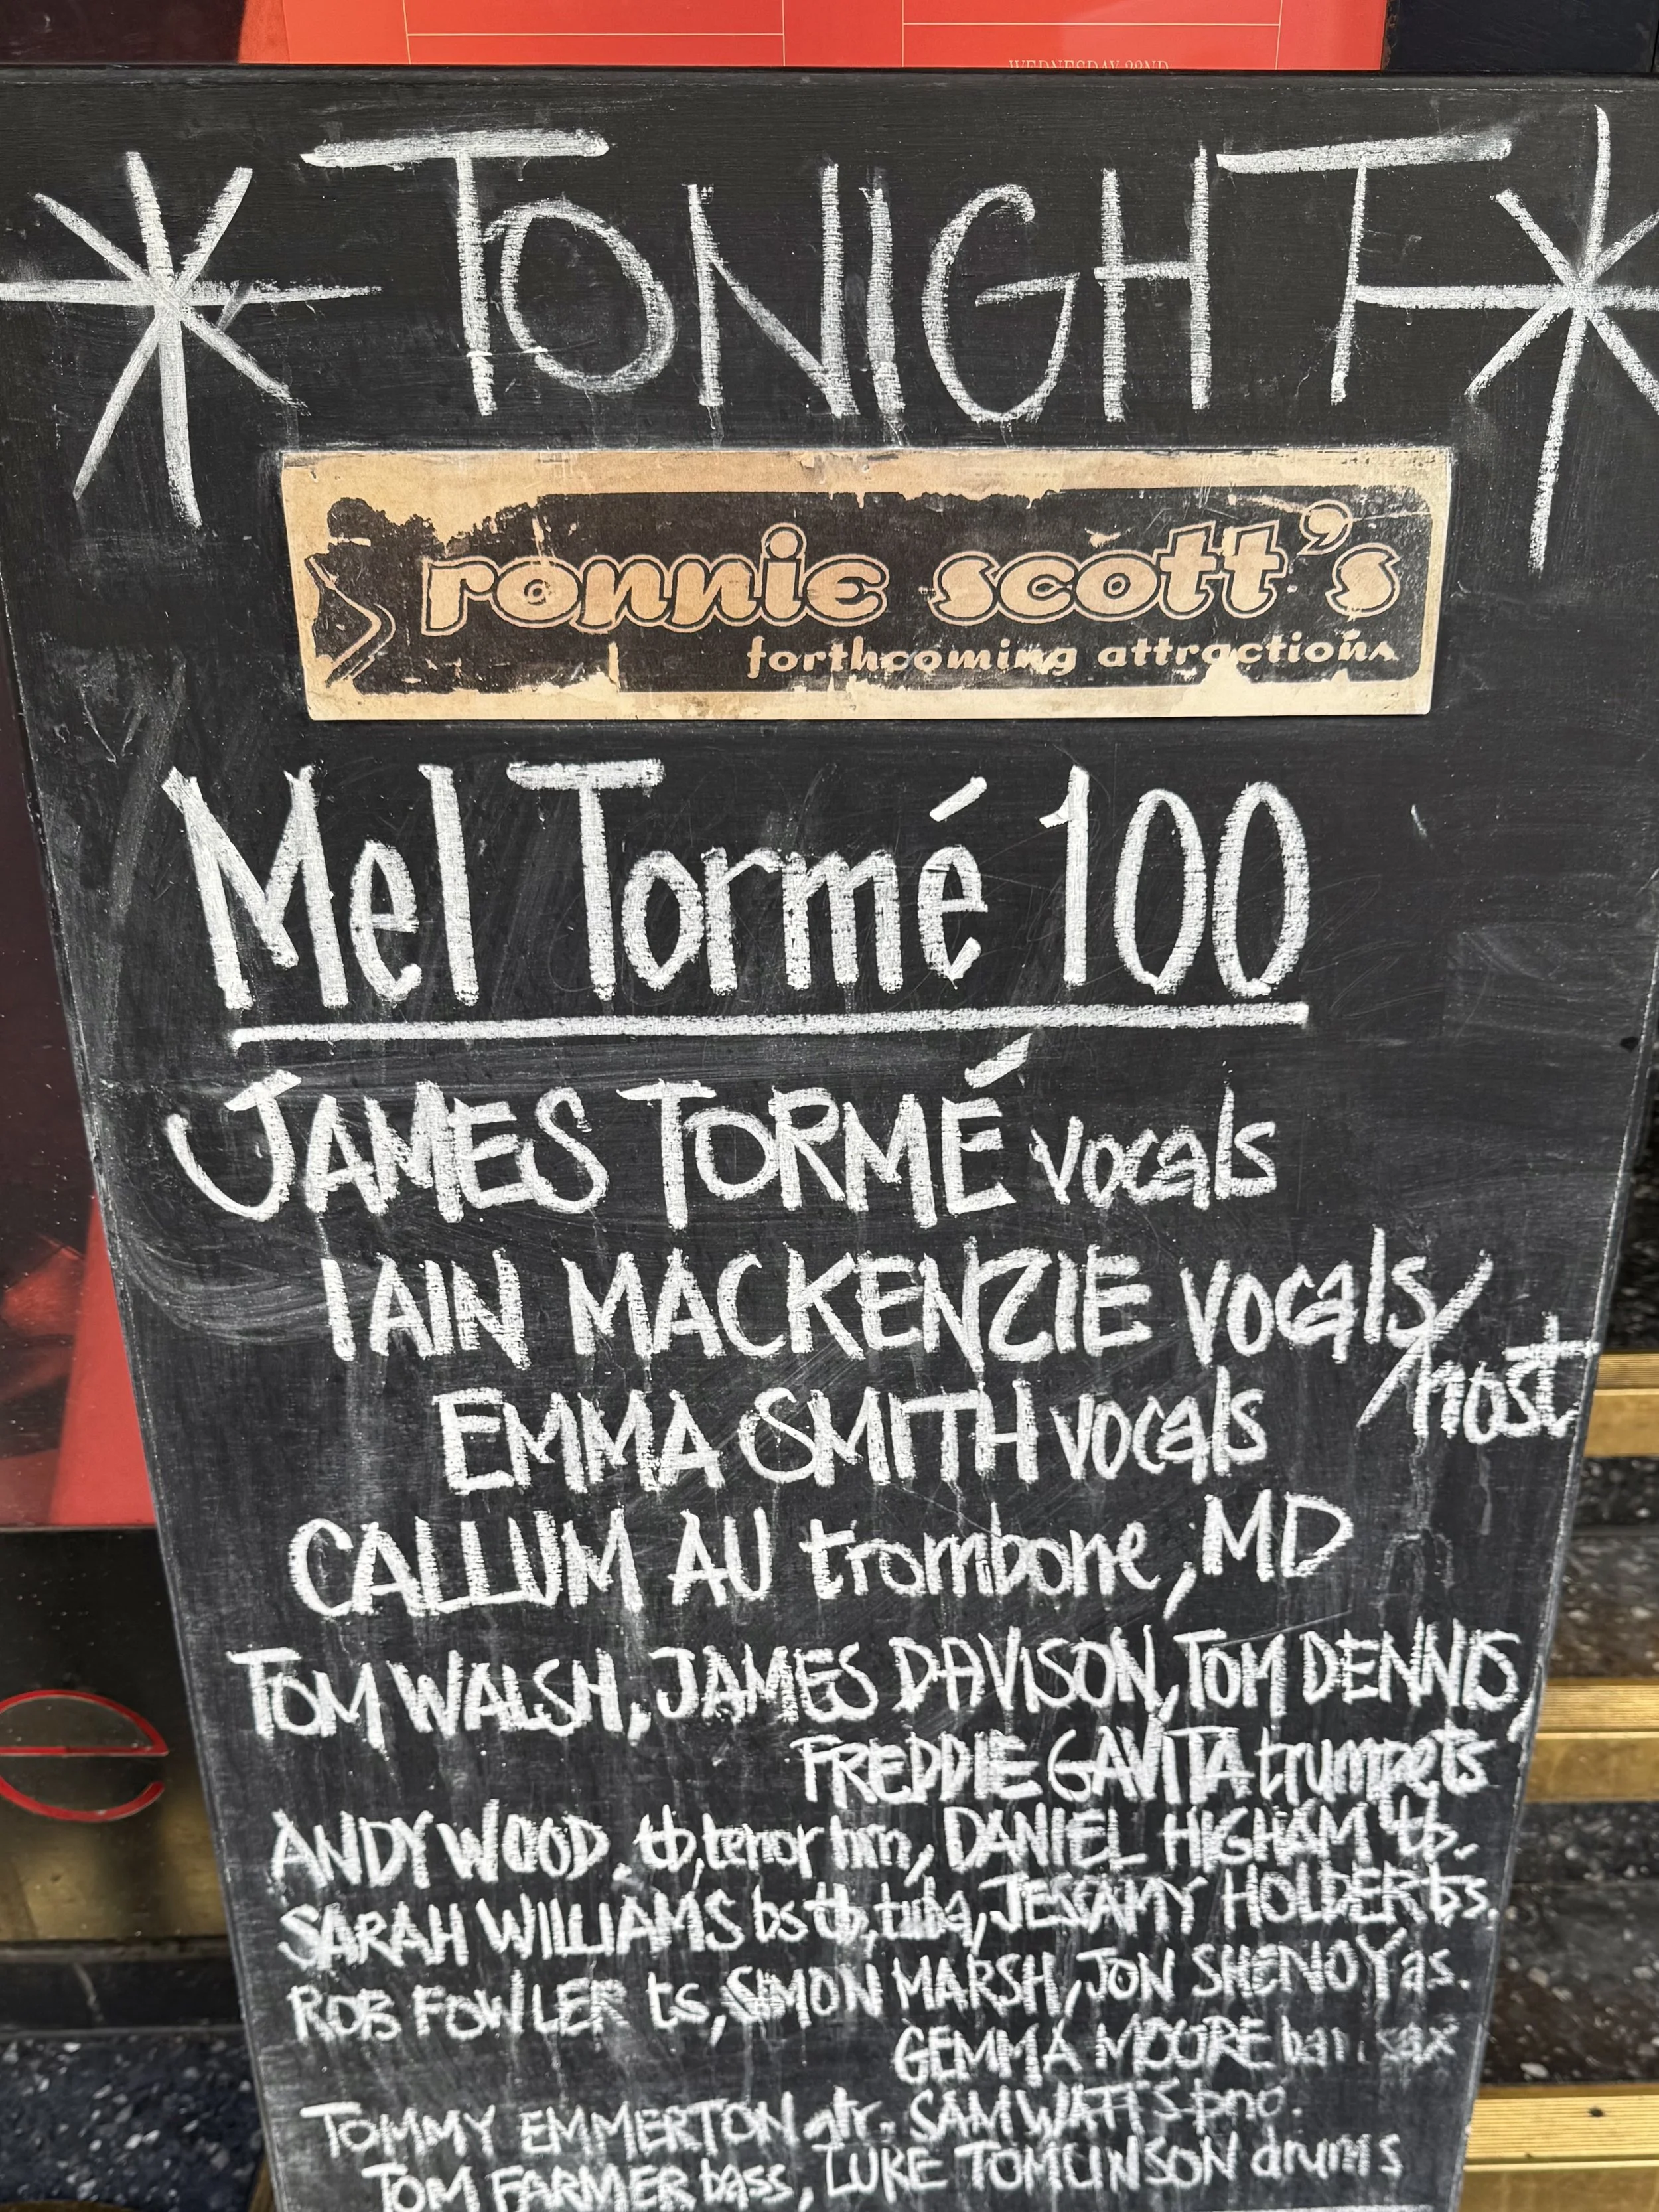 WEDNESDAY 22ND
TONIGHT
ronnie scott's
forthcoming attractions
Mel Tormé 100
JAMES TORMÉ vocals
IAIN MACKENZIE vocals/
host
EMMA SMITH vocals
CALLUM AU trombone, MD
TOM WALSH, JAMES DAVISON, TOM DENNIS,
FREDDIE GAVITA trumpets
ANDY WOOD, tb, tenor hrn, DANIEL HIGHAM tb.
SARAH WILLIAMS bs tb, tuba, JESSAMY HOLDER bs.
ROB FOWLER ts, SIMON MARSH, JON SHENOY as.
GEMMA MOORE bari sax
TOMMY EMMERTON gtr. SAM WATTS pno.
TOM FARMER bass, LUKE TOMLINSON drums
e